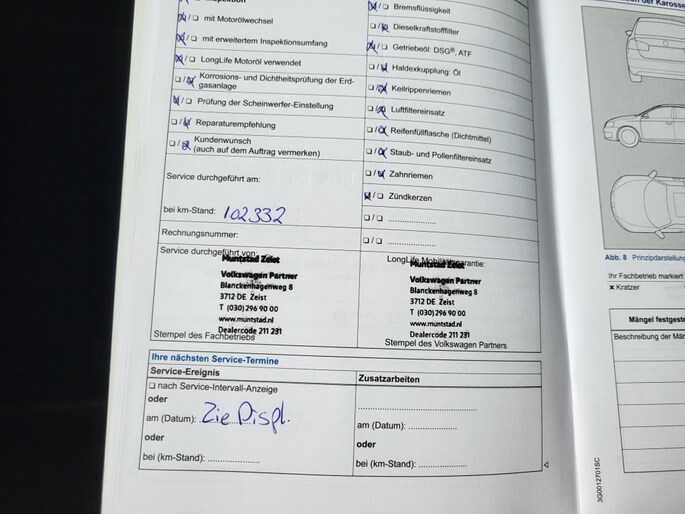 Inspektion
☒/☐ mit Motorölwechsel
☒/☐ mit erweitertem Inspektionsumfang
☒/☐ LongLife Motoröl verwendet
☐/☒ Korrosions- und Dichtheitsprüfung der Erd-
gasanlage
☒/☐ Prüfung der Scheinwerfer-Einstellung
☐/☒ Reparaturempfehlung
☐/☒ Kundenwunsch
(auch auf dem Auftrag vermerken)
Service durchgeführt am:
bei km-Stand: 102332
Rechnungsnummer:
Service durchgeführt von:
Muntstad Zeist
Volkswagen Partner
Blanckenhagenweg 8
3712 DE Zeist
T (030) 296 90 00
www.muntstad.nl
Dealercode 211 231
Stempel des Fachbetriebs
☒/☐ Bremsflüssigkeit
☐/☒ Dieselkraftstofffilter
☒/☐ Getriebeöl: DSG®, ATF
☐/☒ Haldexkupplung: Öl
☐/☒ Keilrippenriemen
☐/☒ Luftfiltereinsatz
☐/☒ Reifenfüllflasche (Dichtmittel)
☐/☒ Staub- und Pollenfiltereinsatz
☐/☒ Zahnriemen
☒/☐ Zündkerzen
☐/☐ ....................
☐/☐ ....................
LongLife Mobilitätsgarantie:
Muntstad Zeist
Volkswagen Partner
Blanckenhagenweg 8
3712 DE Zeist
T (030) 296 90 00
www.muntstad.nl
Dealercode 211 231
Stempel des Volkswagen Partners
Ihre nächsten Service-Termine
Service-Ereignis
☐ nach Service-Intervall-Anzeige
oder
am (Datum): Zie Displ.
oder
bei (km-Stand): ....................
Zusatzarbeiten
........................................
am (Datum): ....................
oder
bei (km-Stand): ....................
der Karosse
Abb. 8 Prinzipdarstellung
Ihr Fachbetrieb markiert
x Kratzer
Mängel festgeste
Beschreibung der Män
3G0012701SC